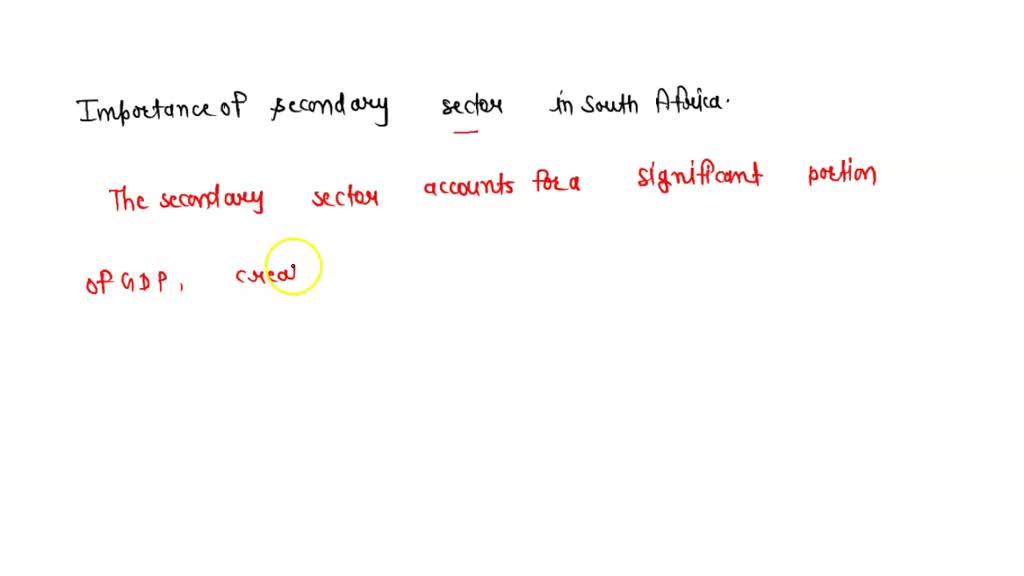 Importance of secondary sector in South Africa.
The secondary sector accounts for a significant portion
of GDP, crea